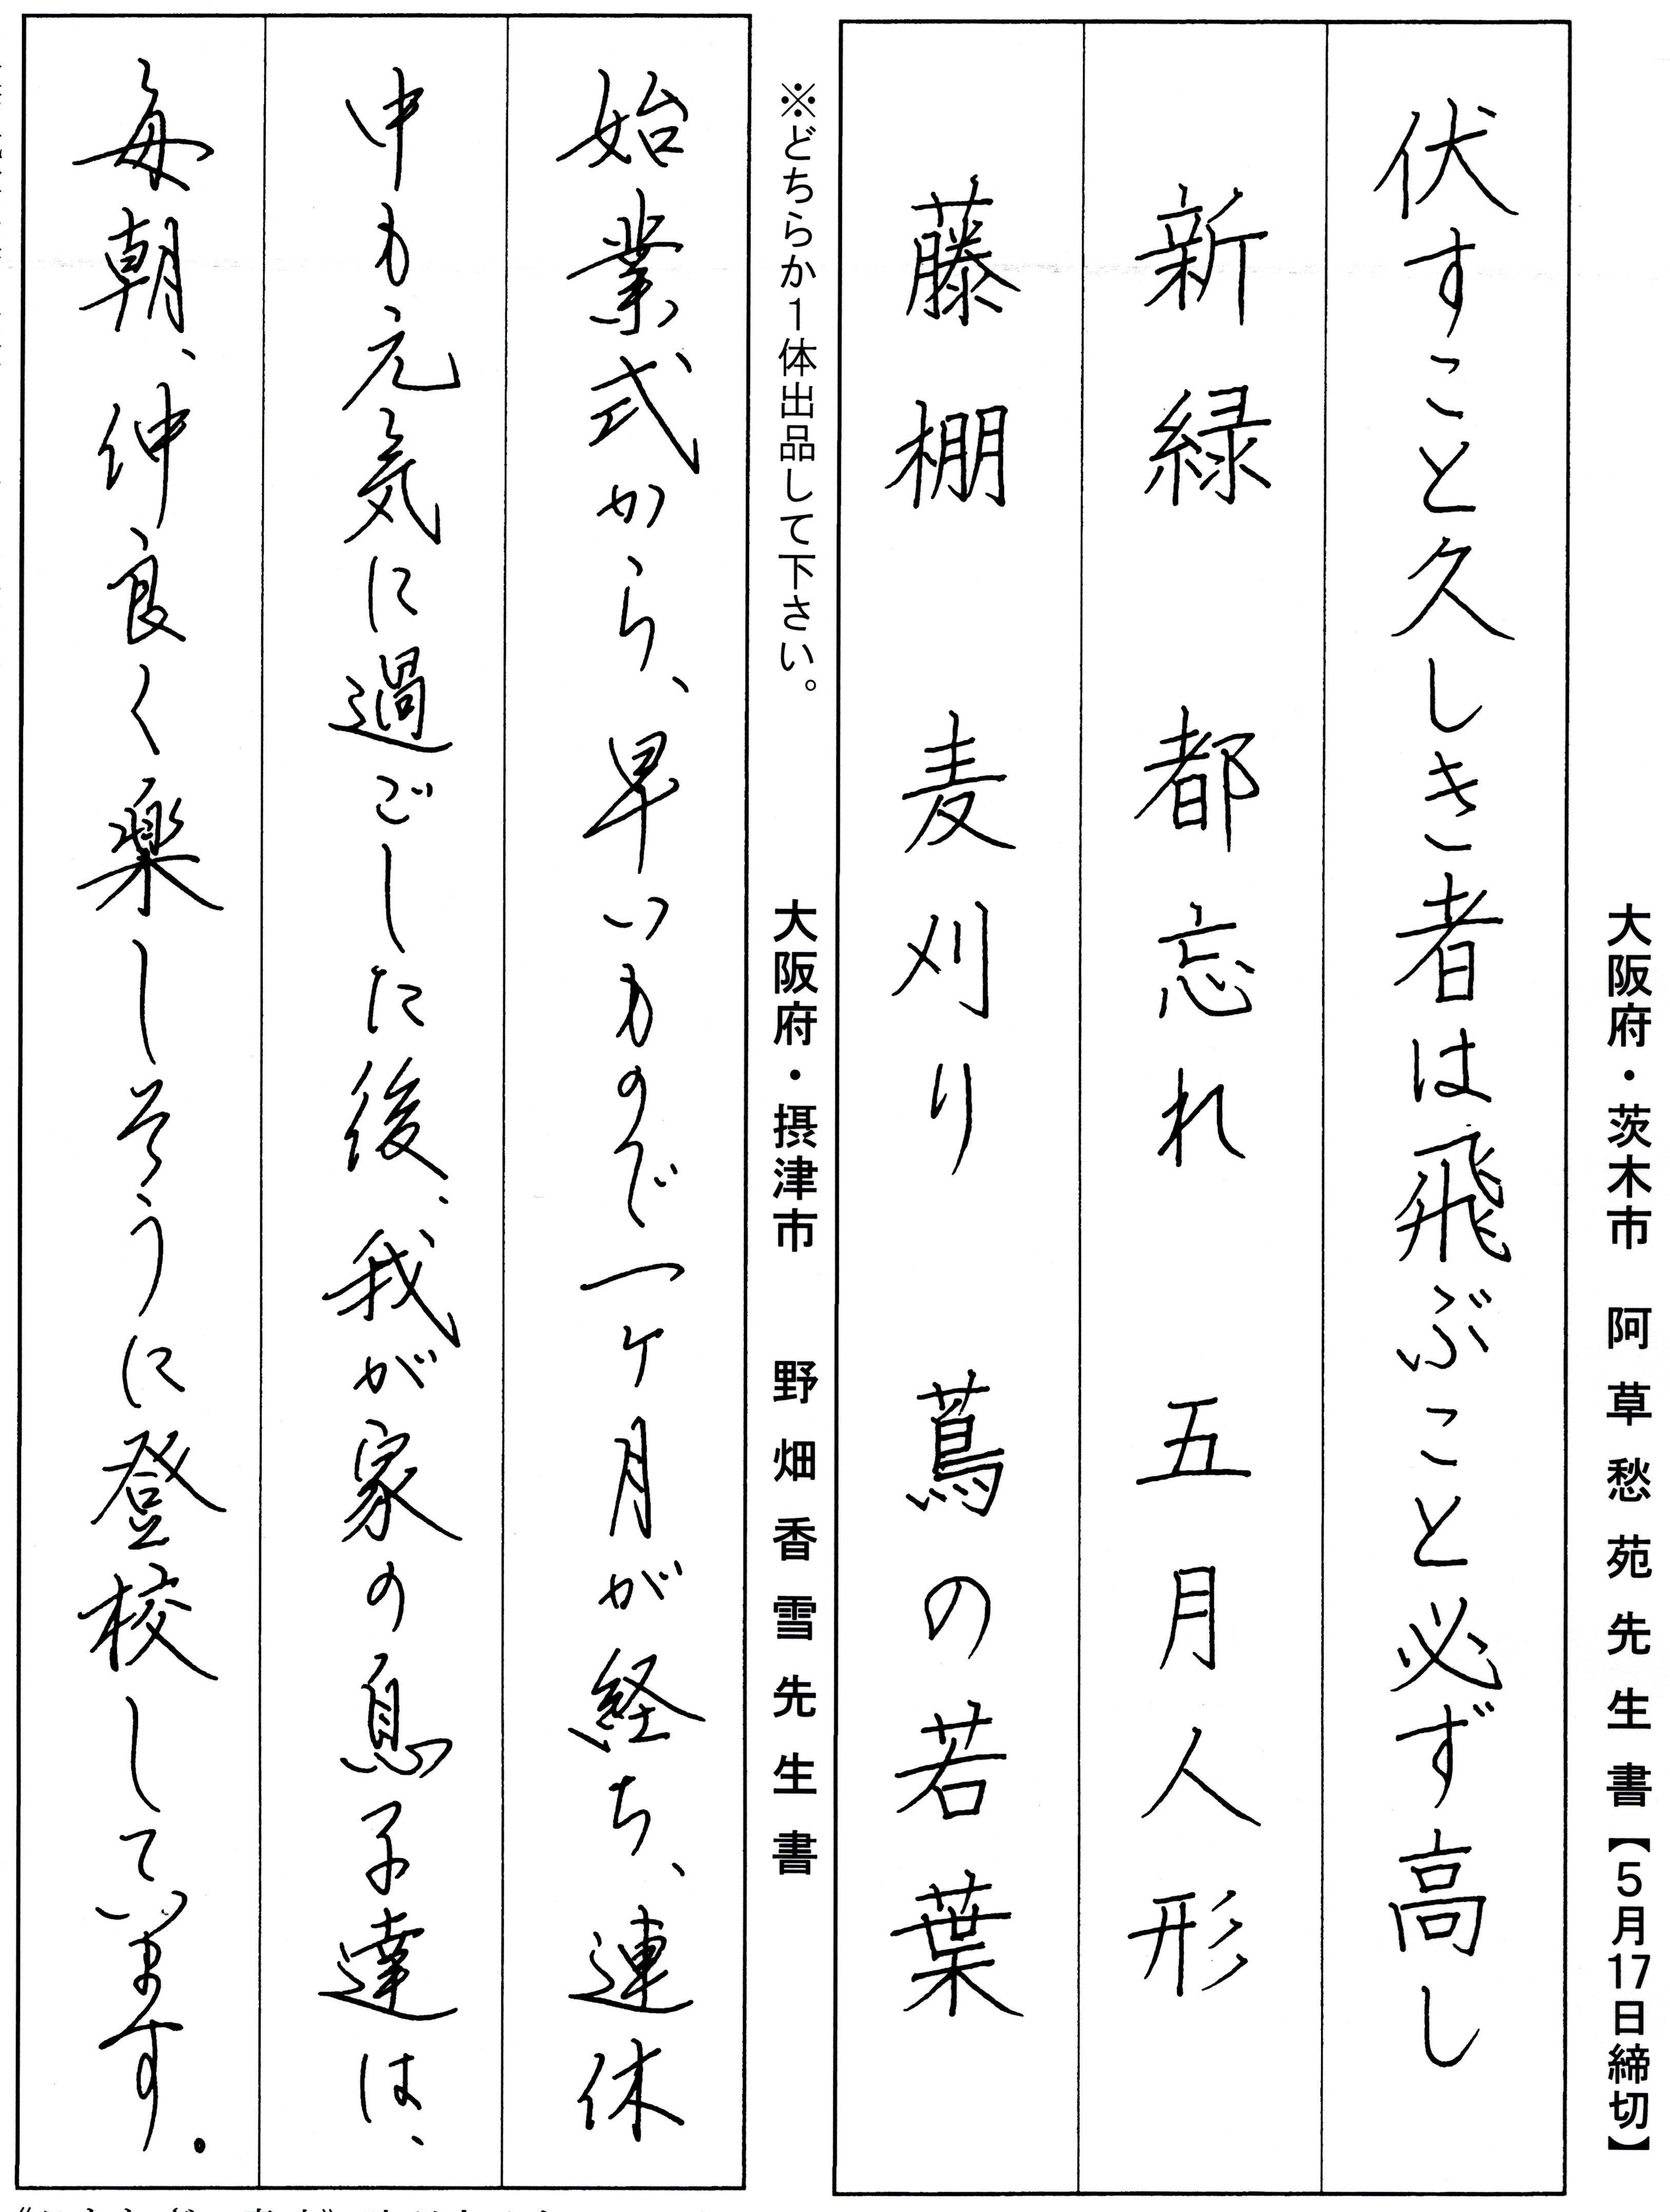 大阪府・茨木市 阿草愁苑先生書【5月17日締切】
伏すこと久しき者は飛ぶこと必ず高し
新緑 都忘れ 五月人形
藤棚 麦刈り 蔦の若葉
※どちらか1体出品して下さい。
大阪府・摂津市 野畑香雪先生書
始業式から、早いもので一ヶ月が経ち、連休
中も元気に過ごした後、我が家の息子達は、
毎朝、仲良く楽しそうに登校しています。